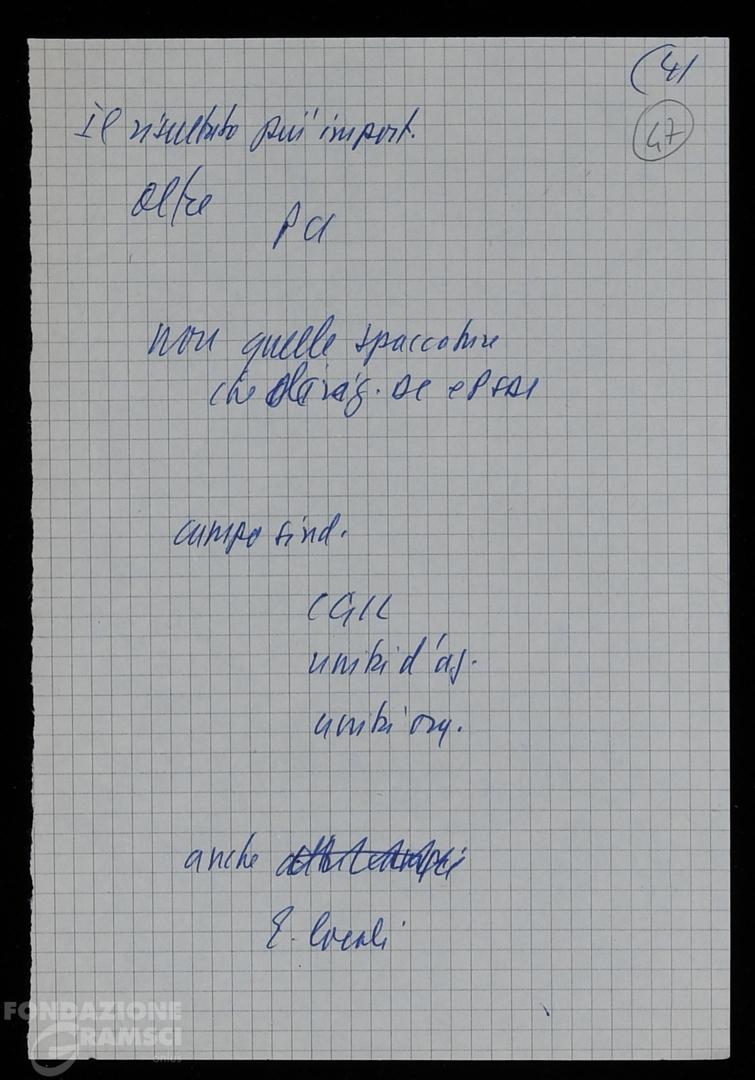 (4)
47
Il risultato più import.
oltre
PCI
non quelle spaccature
che rag. DC e PSDI
campo sind.
CGIL
unità d'az.
unità org.
anche
E. locali
FONDAZIONE
GRAMSCI
onlus